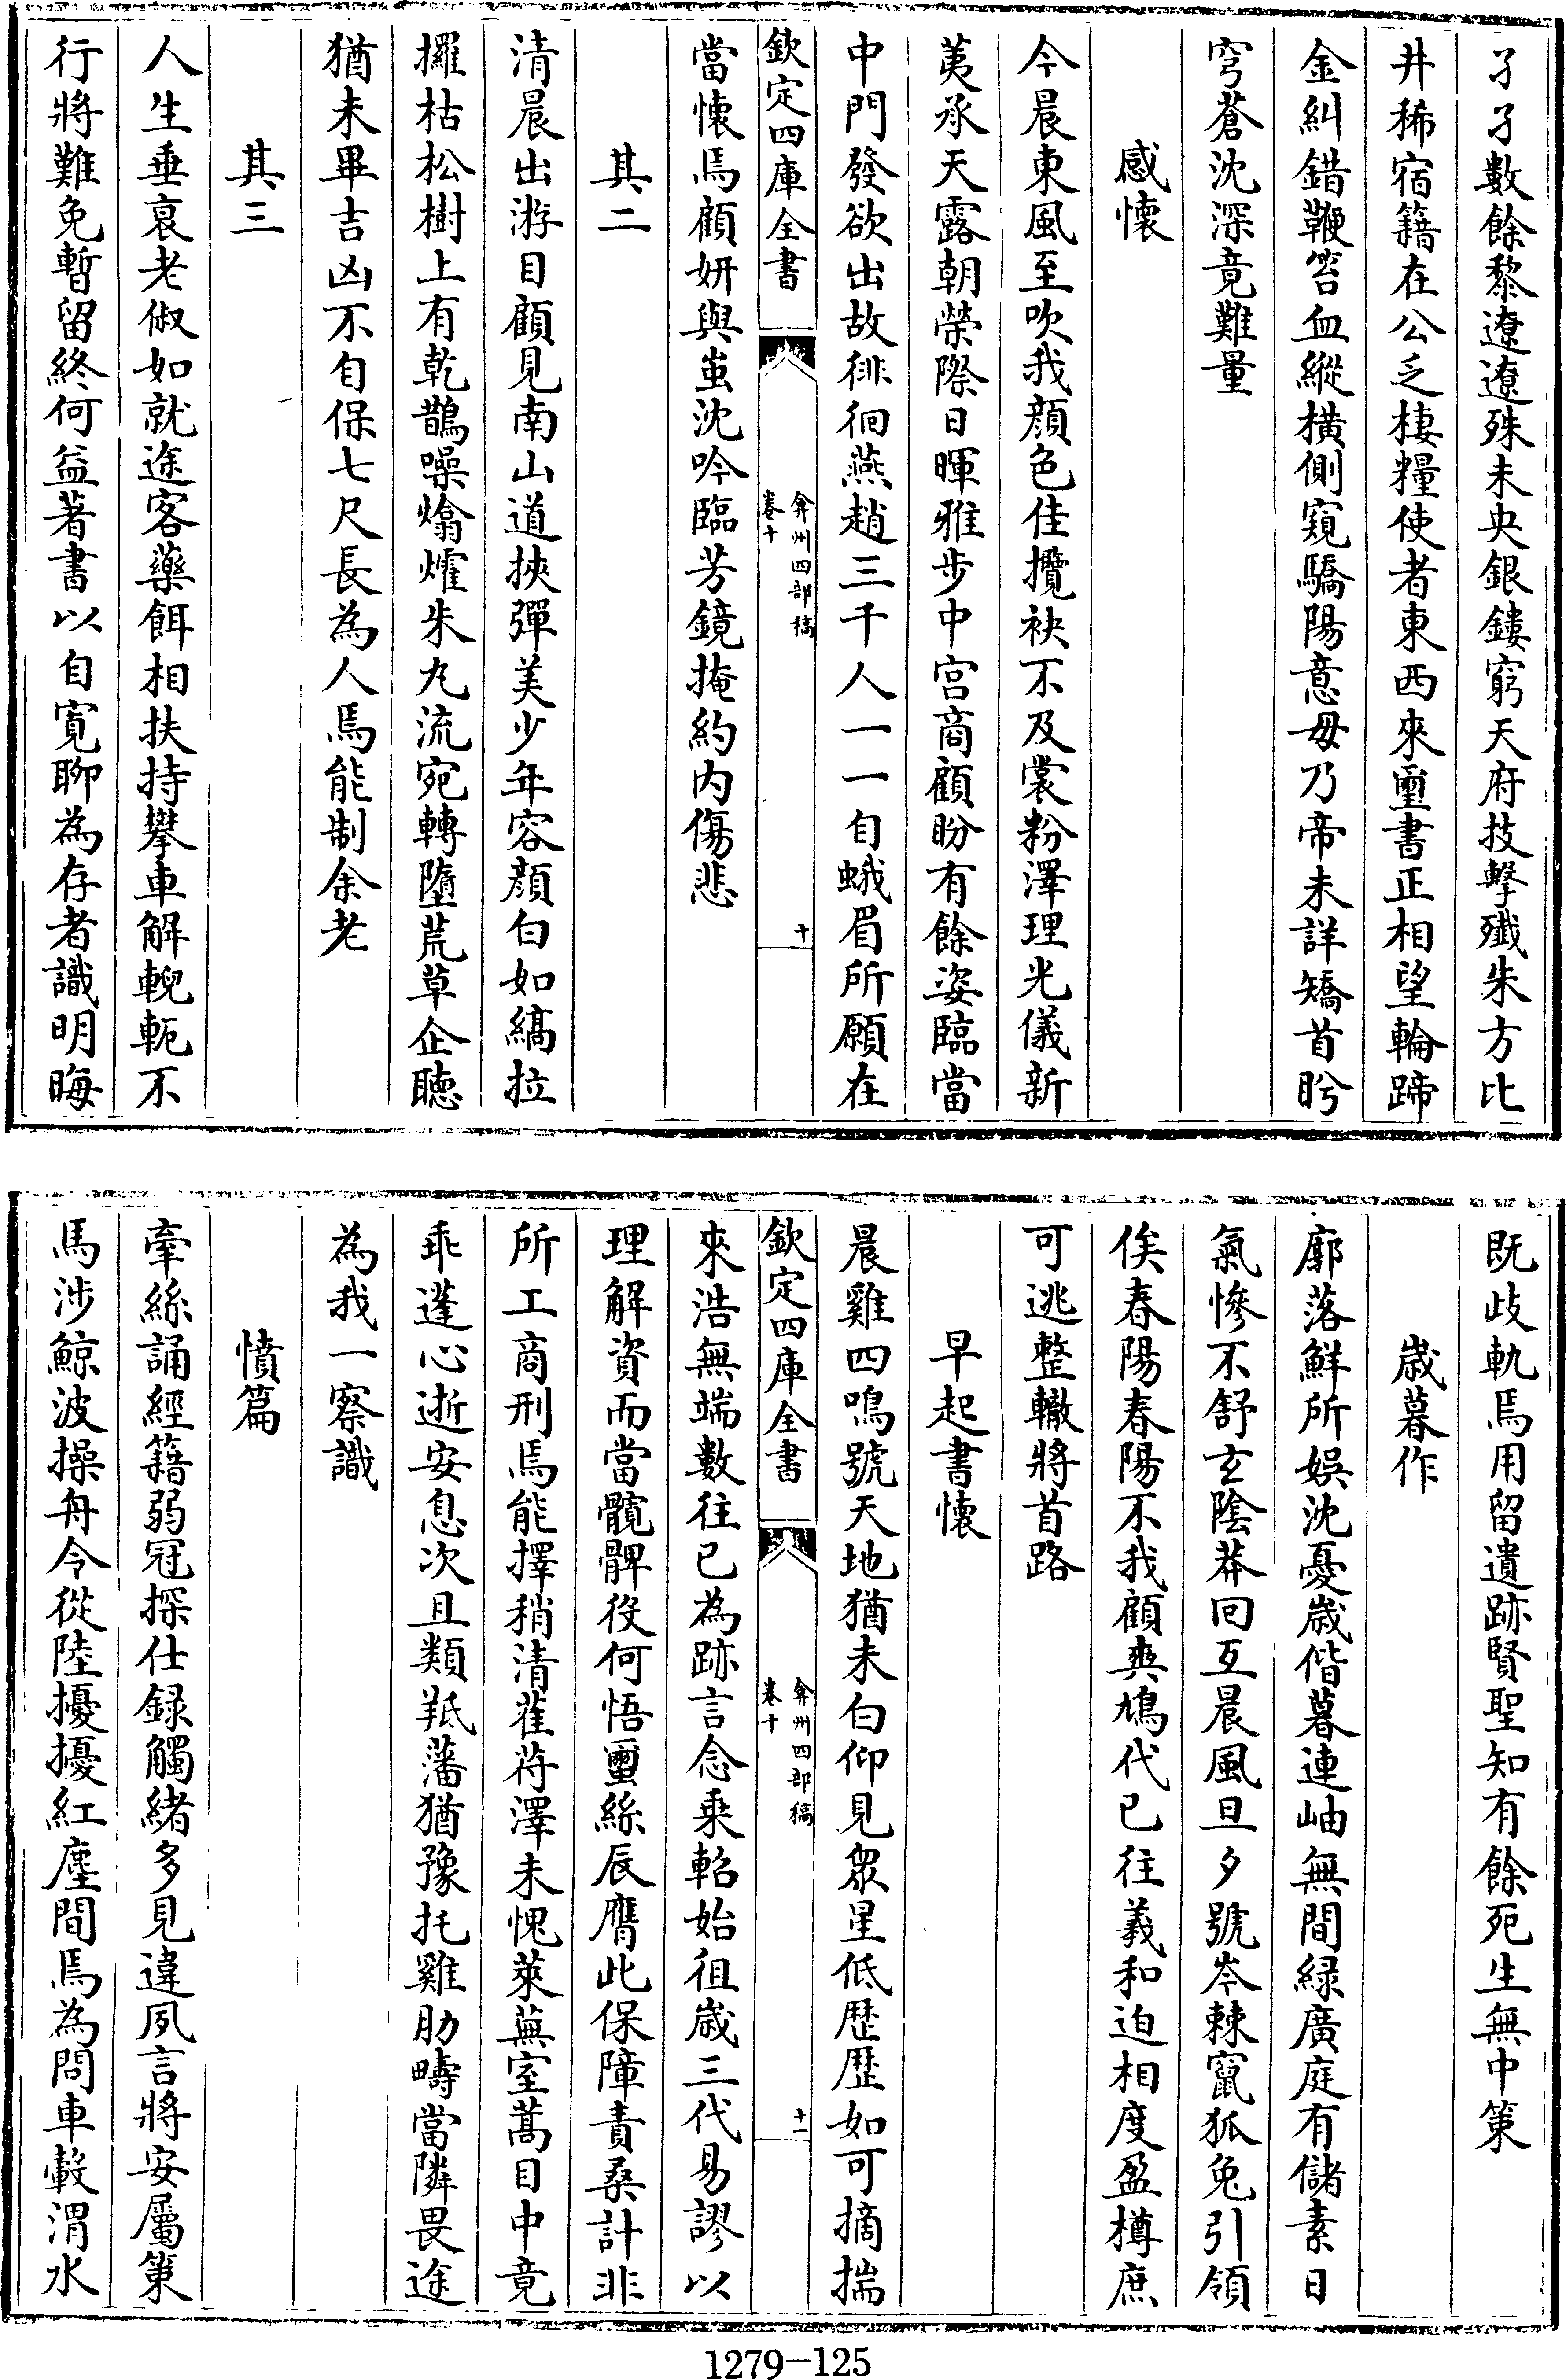 孑孑數餘黎遼遼殊未央銀鏤窮天府技擊殲朱方比
井稀宿籍在公乏棲糧使者東西來璽書正相望輪蹄
金糾錯鞭笞血縱橫側窺驕陽意毋乃帝未詳矯首眄
穹蒼沈深竟難量
感懷
今晨東風至吹我顔色佳攬袂不及裳粉澤理光儀新
荑承天露朝榮際日暉雅步中宫商顧盼有餘姿臨當
中門發欲出故徘徊燕趙三千人一一自蛾眉所願在
欽定四庫全書
弇州四部稿
卷十
十
當懷焉顧妍與蚩沈吟臨芳鏡掩約内傷悲
其二
清晨出游目顧見南山道挾彈美少年容顔白如縞拉
攞枯松樹上有乾鵲噪熻爠朱丸流宛轉墮荒草企聽
猶未畢吉凶不自保七尺長為人焉能制余老
其三
人生垂哀老俶如就途客藥餌相扶持攀車解輗軛不
行將難免暫留終何益著書以自寬聊為存者識明晦
既歧軌焉用留遺跡賢聖知有餘死生無中策
歲暮作
廓落鮮所娛沈憂歲偕暮連岫無間緑廣庭有儲素日
氣慘不舒玄陰莽回互晨風旦夕號岑棘竄狐兔引領
俟春陽春陽不我顧爽鳩代已往羲和迫相度盈樽庶
可逃整轍將首路
早起書懷
晨雞四鳴號天地猶未白仰見衆星低歴歴如可摘揣
欽定四庫全書
弇州四部稿
卷十
十一
來浩無端數往已為跡言念乗軺始徂歲三代易謬以
理解資而當髖髀役何悟璽絲辰膺此保障責桑計非
所工商刑焉能擇稍清萑苻澤未愧萊蕪室蒿目中竟
乖蓬心逝安息次且類羝藩猶豫托雞肋疇當隣畏途
為我一察識
憤篇
牽絲誦經籍弱冠探仕録觸緒多見違夙言將安屬策
馬涉鯨波操舟令從陸擾擾紅塵間焉為問車轂渭水
1279-125